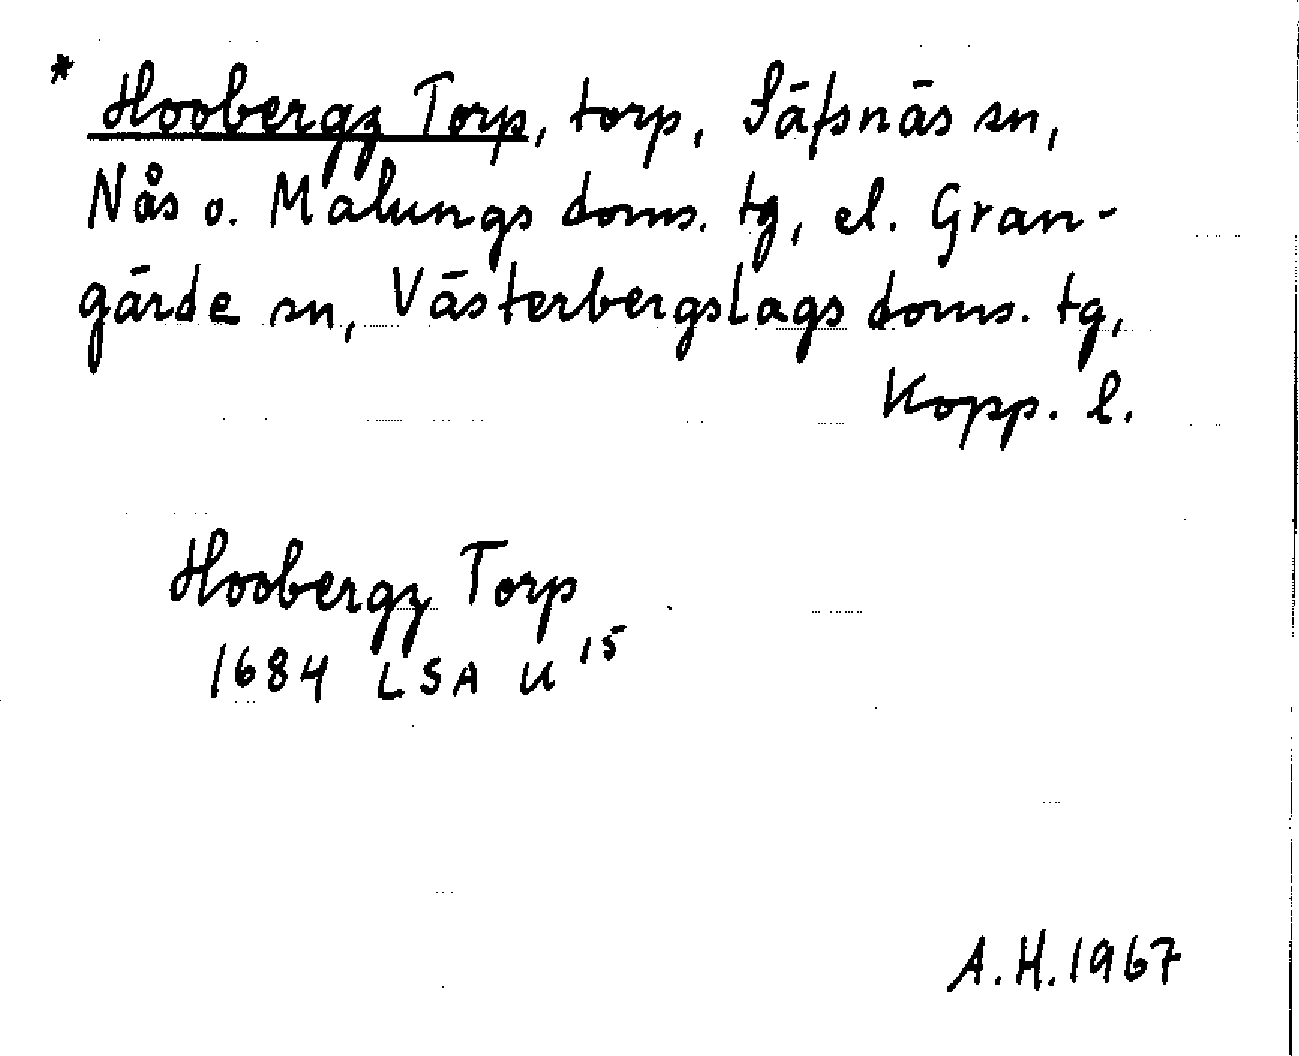 * Hoobergz Torp, torp, Säfsnäs sn,
Nås o. Malungs doms. tg, el. Gran-
gärde sn, Västerbergslags doms. tg,
Kopp. l.
Hoobergz Torp
1684 LSA U 15
A.H. 1967